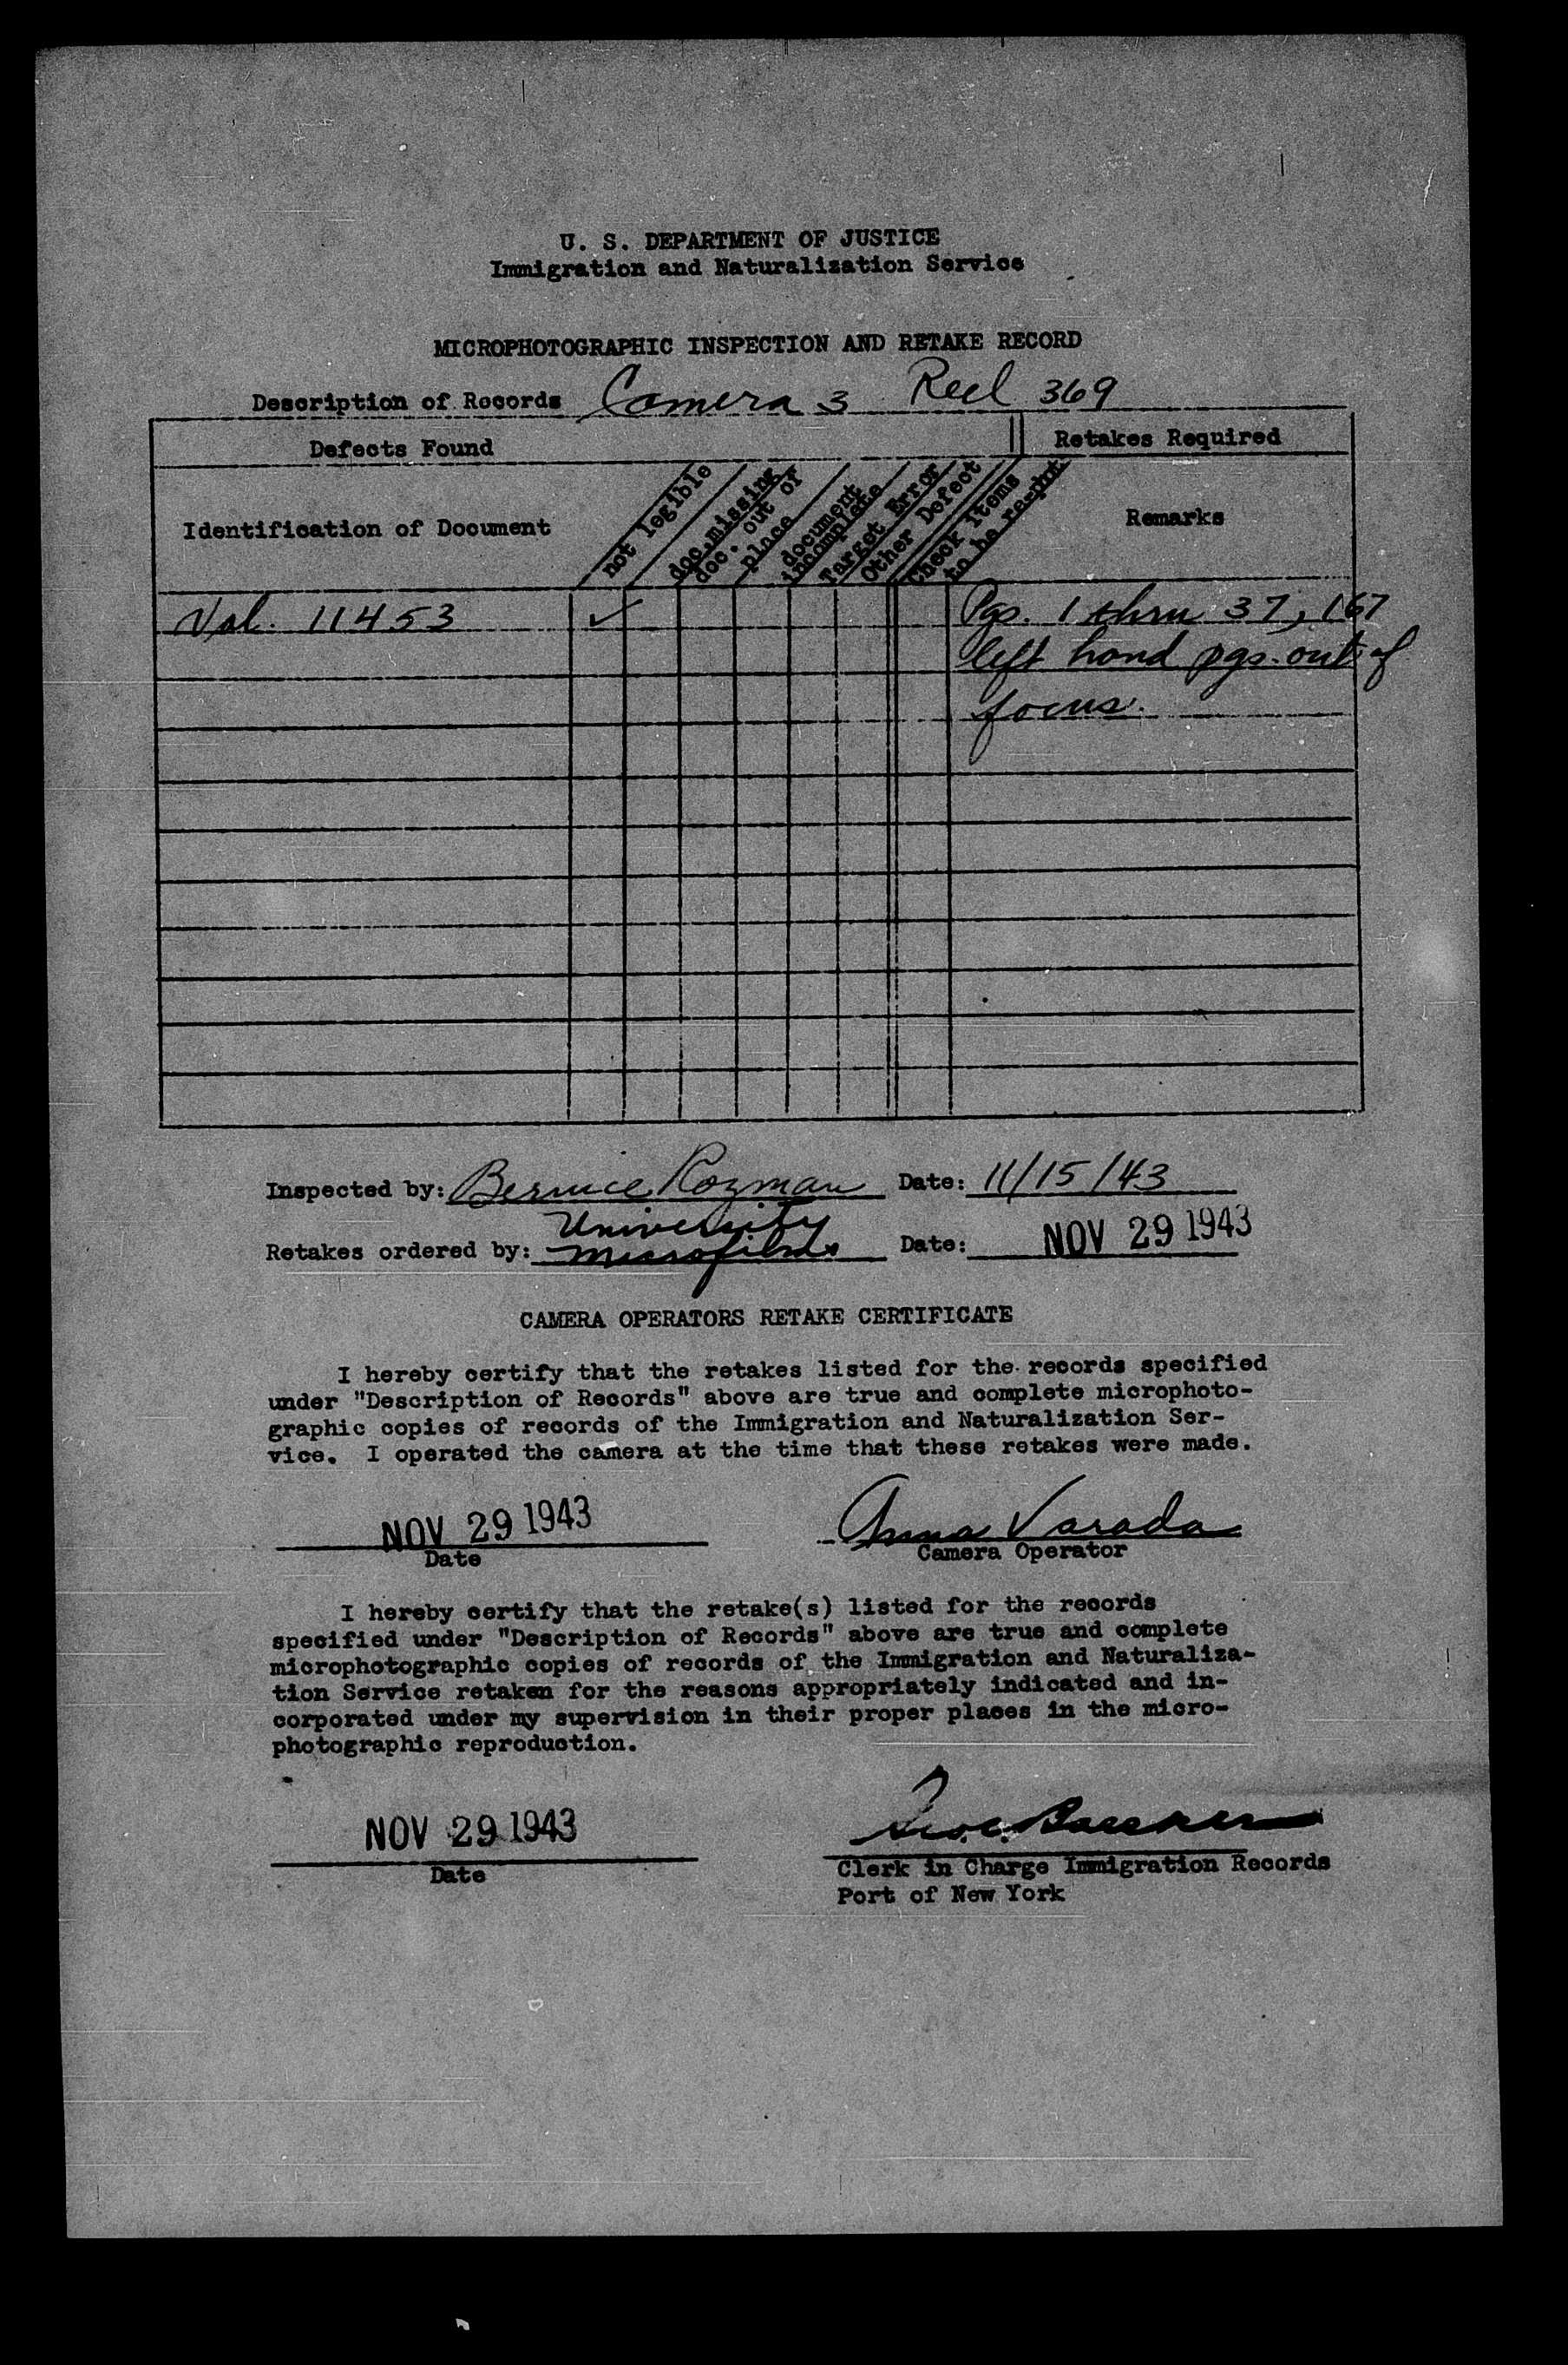 U. S. DEPARTMENT OF JUSTICE
Immigration and Naturalization Service
MICROPHOTOGRAPHIC INSPECTION AND RETAKE RECORD
Description of Records Camera 3 Reel 369
Defects Found
Retakes Required
Identification of Document
not legible
doc. missing
doc. out of
place
document
incomplete
Target Error
Other Defect
Check Items
to be re-phot
Remarks
Vol. 11453 ✓ Pgs. 1 thru 37, 167
left hand pgs. out of
focus.
Inspected by: Bernice Rozman Date: 11/15/43
University
Retakes ordered by: Microfilms Date: NOV 29 1943
CAMERA OPERATORS RETAKE CERTIFICATE
I hereby certify that the retakes listed for the records specified
under "Description of Records" above are true and complete microphoto-
graphic copies of records of the Immigration and Naturalization Ser-
vice. I operated the camera at the time that these retakes were made.
NOV 29 1943 Anna Varada
Date Camera Operator
I hereby certify that the retake(s) listed for the records
specified under "Description of Records" above are true and complete
microphotographic copies of records of the Immigration and Naturaliza-
tion Service retaken for the reasons appropriately indicated and in-
corporated under my supervision in their proper places in the micro-
photographic reproduction.
NOV 29 1943
Date
Clerk in Charge Immigration Records
Port of New York